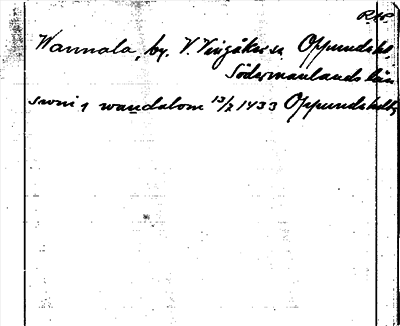 RAP
Wannala, by. V. Vingåkers sn Oppunda hd,
Södermanlands län
swni j wandalom 13/7 1433 Oppunda hdtg